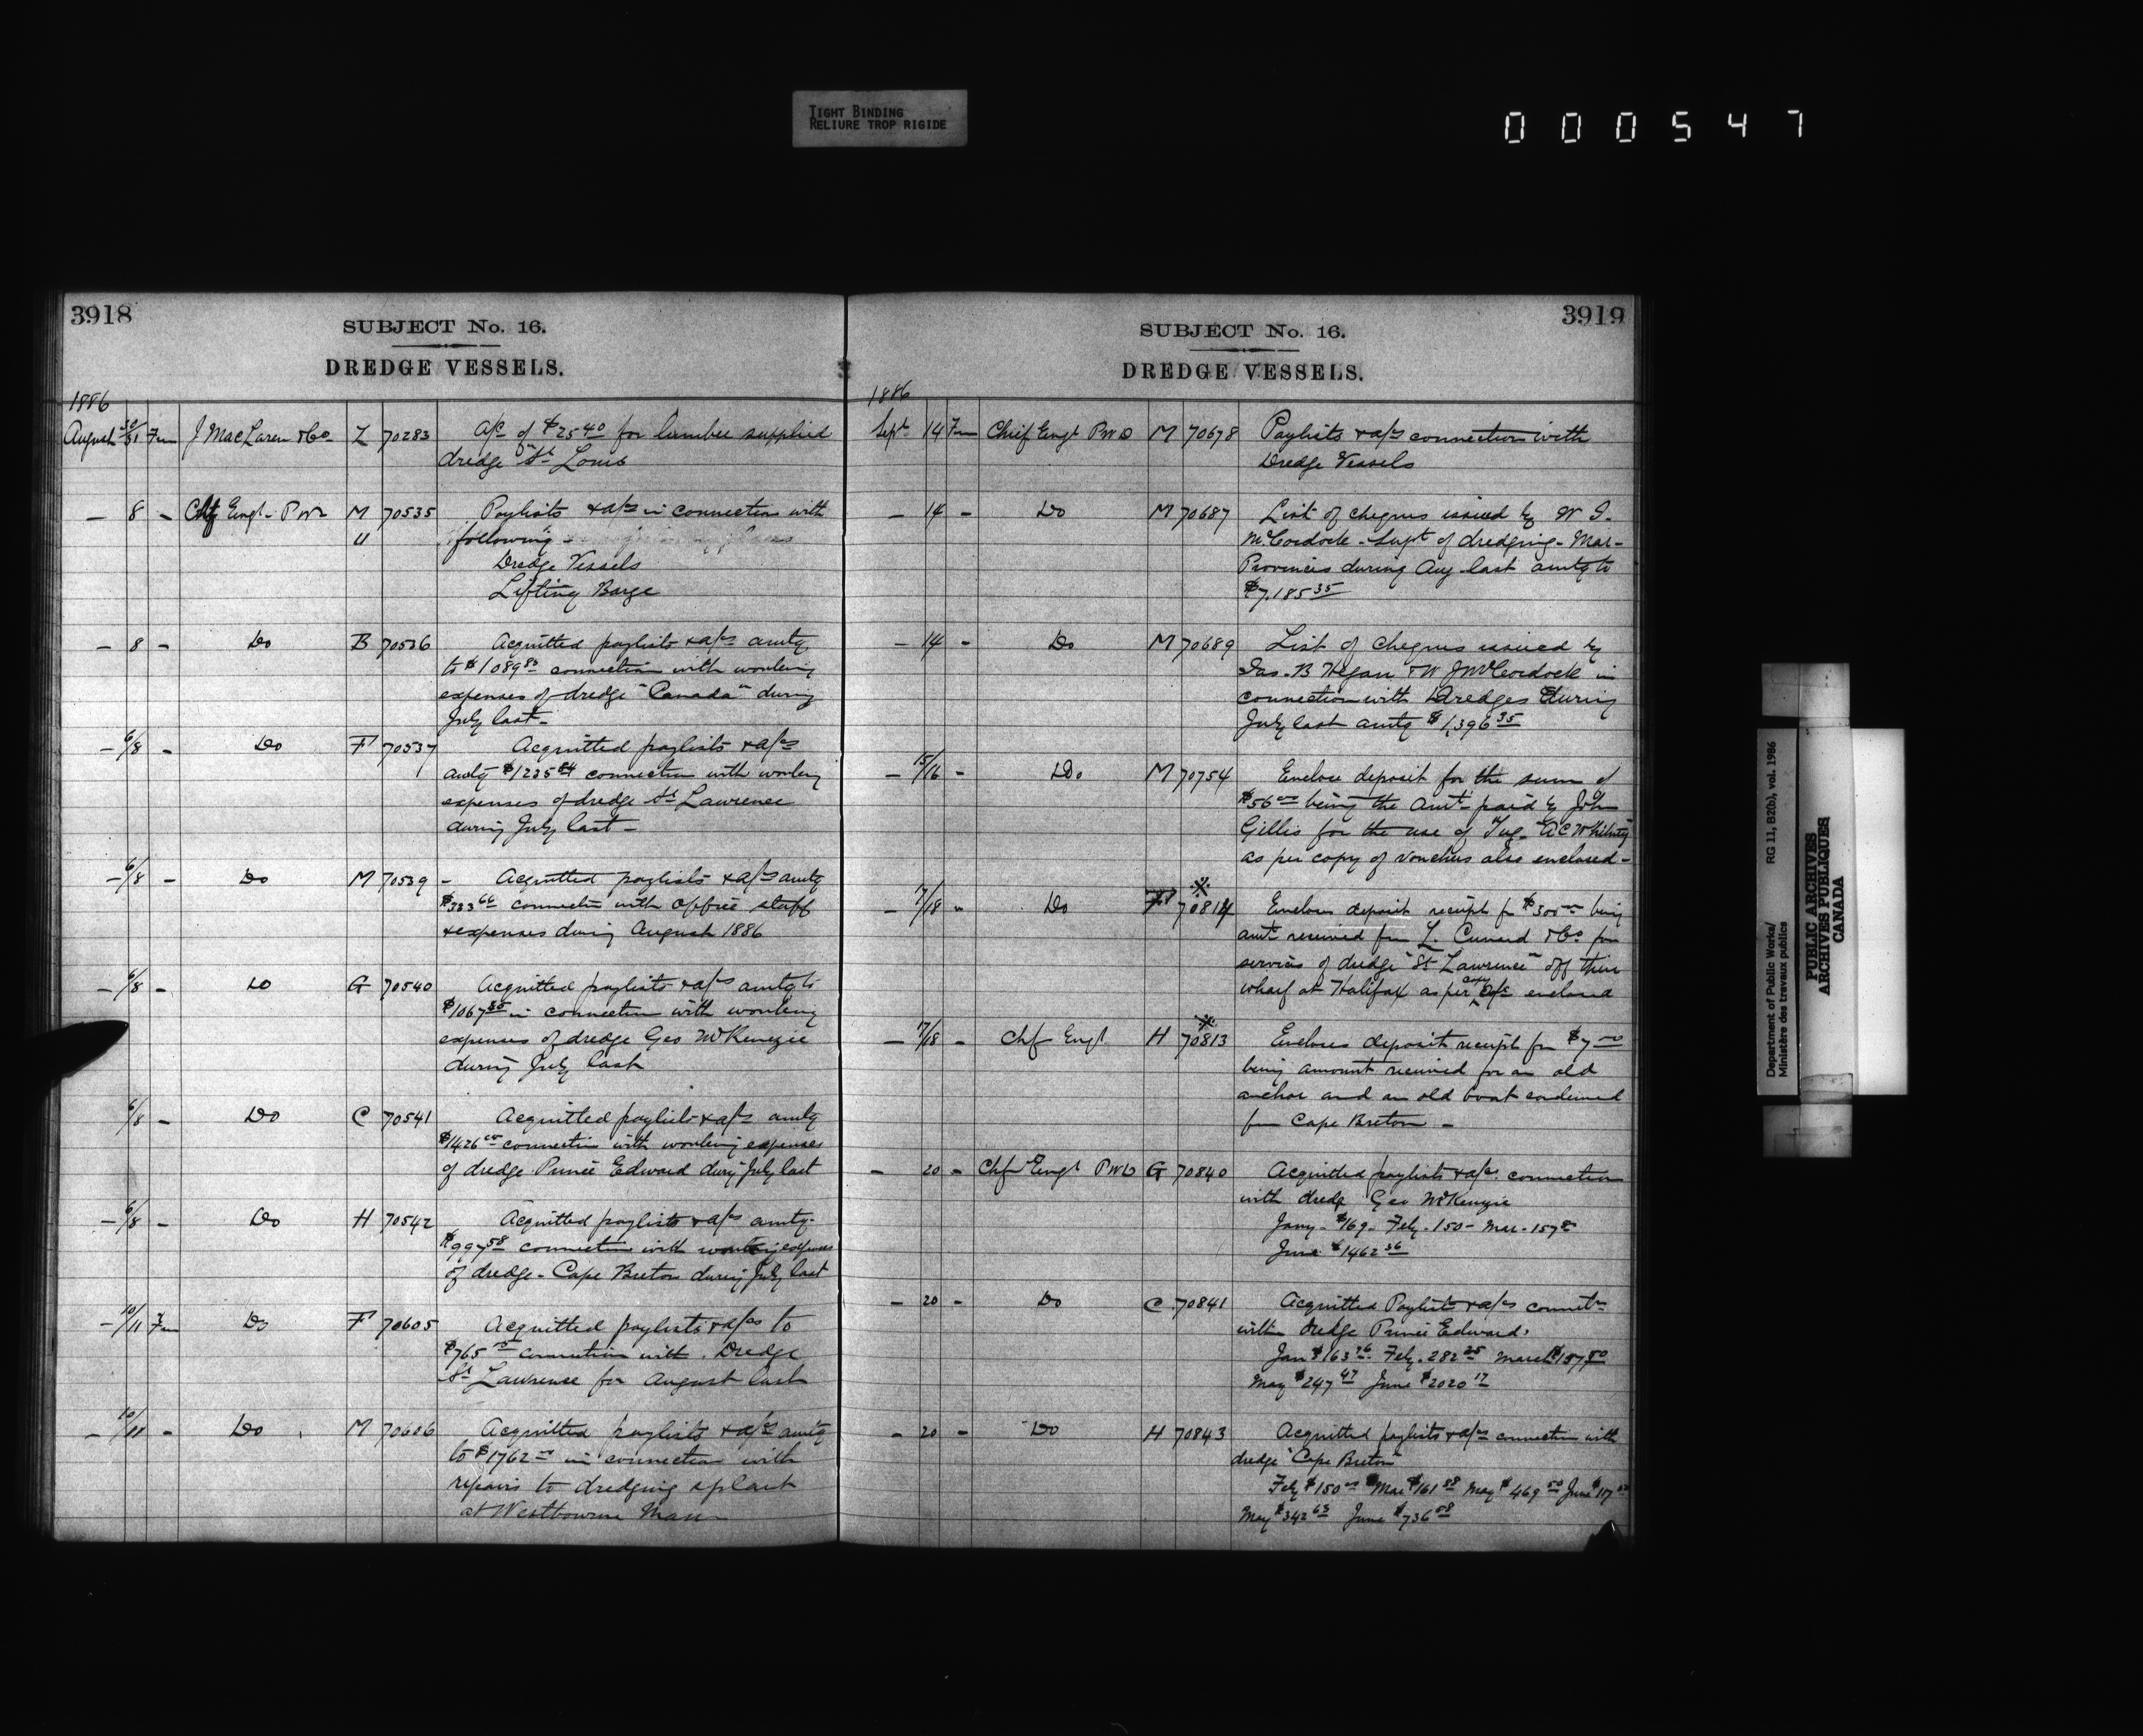 TIGHT BINDING
RELIURE TROP RIGIDE
000547
3918
SUBJECT No. 16.
DREDGE VESSELS.
1886
August 30/31 Fm J MacLaren & Co Z 70283 A/c of $25.40 for lumber supplied
dredge "St Louis
— 8 — Chf Engr - PWD M 70535 Paylists & a/cs in connection with
" following -
Dredge Vessels
Lifting Barge
— 8 — Do B 70536 Acquitted paylists & a/cs amtg
to $1089 connection with working
expenses of dredge "Canada" during
July last -
— 6/8 — Do F 70537 Acquitted paylists & a/cs
amtg $1235 84 connection with working
expenses of dredge St Lawrence
during July last -
— 6/8 — Do M 70539 - Acquitted paylists & a/cs amtg
$333 66 connection with office staff
& expenses during August 1886
— 6/8 — Do G 70540 Acquitted paylists & a/cs amtg to
$1067 in connection with working
expenses of dredge Geo McKenzie
during July last
6/8 — Do C 70541 Acquitted paylists & a/cs amtg
$1426 connection with working expenses
of dredge Prince Edward during July last
— 6/8 — Do H 70542 Acquitted paylists & a/cs amtg.
$997 58 connection with working expenses
of dredge - Cape Breton during July last
— 10/11 Fm Do F 70605 Acquitted paylists & a/cs to
$765 connection with Dredge
St Lawrence for August last
— 10/11 — Do M 70606 Acquitted paylists & a/cs amtg
to $1762 in connection with
repairs to dredging plant
at Westbourne Man
3919
SUBJECT No. 16.
DREDGE VESSELS.
1886
Sept 14 Fm Chief Engr PWD M 70678 Paylists & a/cs connection with
Dredge Vessels
— 14 — Do M 70687 List of cheques issued by W J.
McCordock - Supt of dredging - Mar-
Provinces during Aug last amtg to
$7,185 35
— 14 — Do M 70689 List of Cheques issued by
Jas. B Hegan & W J McCordock in
connection with Dredges during
July last amtg $1,396 35
— 15/16 — Do M 70754 Enclose deposit for the sum of
$56 00 being the amt paid by John
Gillis for the use of Tug -
as per copy of vouchers also enclosed -
— 17/18 " Do F 70814 Encloses deposit receipt for $300 00 being
amt received fm L. Cunard & Co for
services of dredge "St Lawrence" off their
wharf at Halifax as per copy a/c enclosed
— 17/18 — Chf Engr H 70813 Encloses deposit receipt for $7 00
being amount received for an old
anchor and an old boat condemned
fm Cape Breton -
— 20 — Chf Engr PWD G 70840 Acquitted paylists & a/cs connection
with dredge Geo McKenzie
Jany - $169 - Feby - 150 - Mar - 157
June $1462 36
— 20 — Do C 70841 Acquitted Paylists & a/cs connectn
with dredge Prince Edward.
Jan $163 76 Feby. 282 25 March $157 50
May $247 47 June $2020 17
— 20 — Do H 70843 Acquitted paylists & a/cs connection with
dredge "Cape Breton"
Feby $150 00 Mar $161 88 May $469 50 June $117
May $342 63 June $736 58
Department of Public Works/ RG 11, B2(b), vol. 1986
Ministère des travaux publics
PUBLIC ARCHIVES
ARCHIVES PUBLIQUES
CANADA